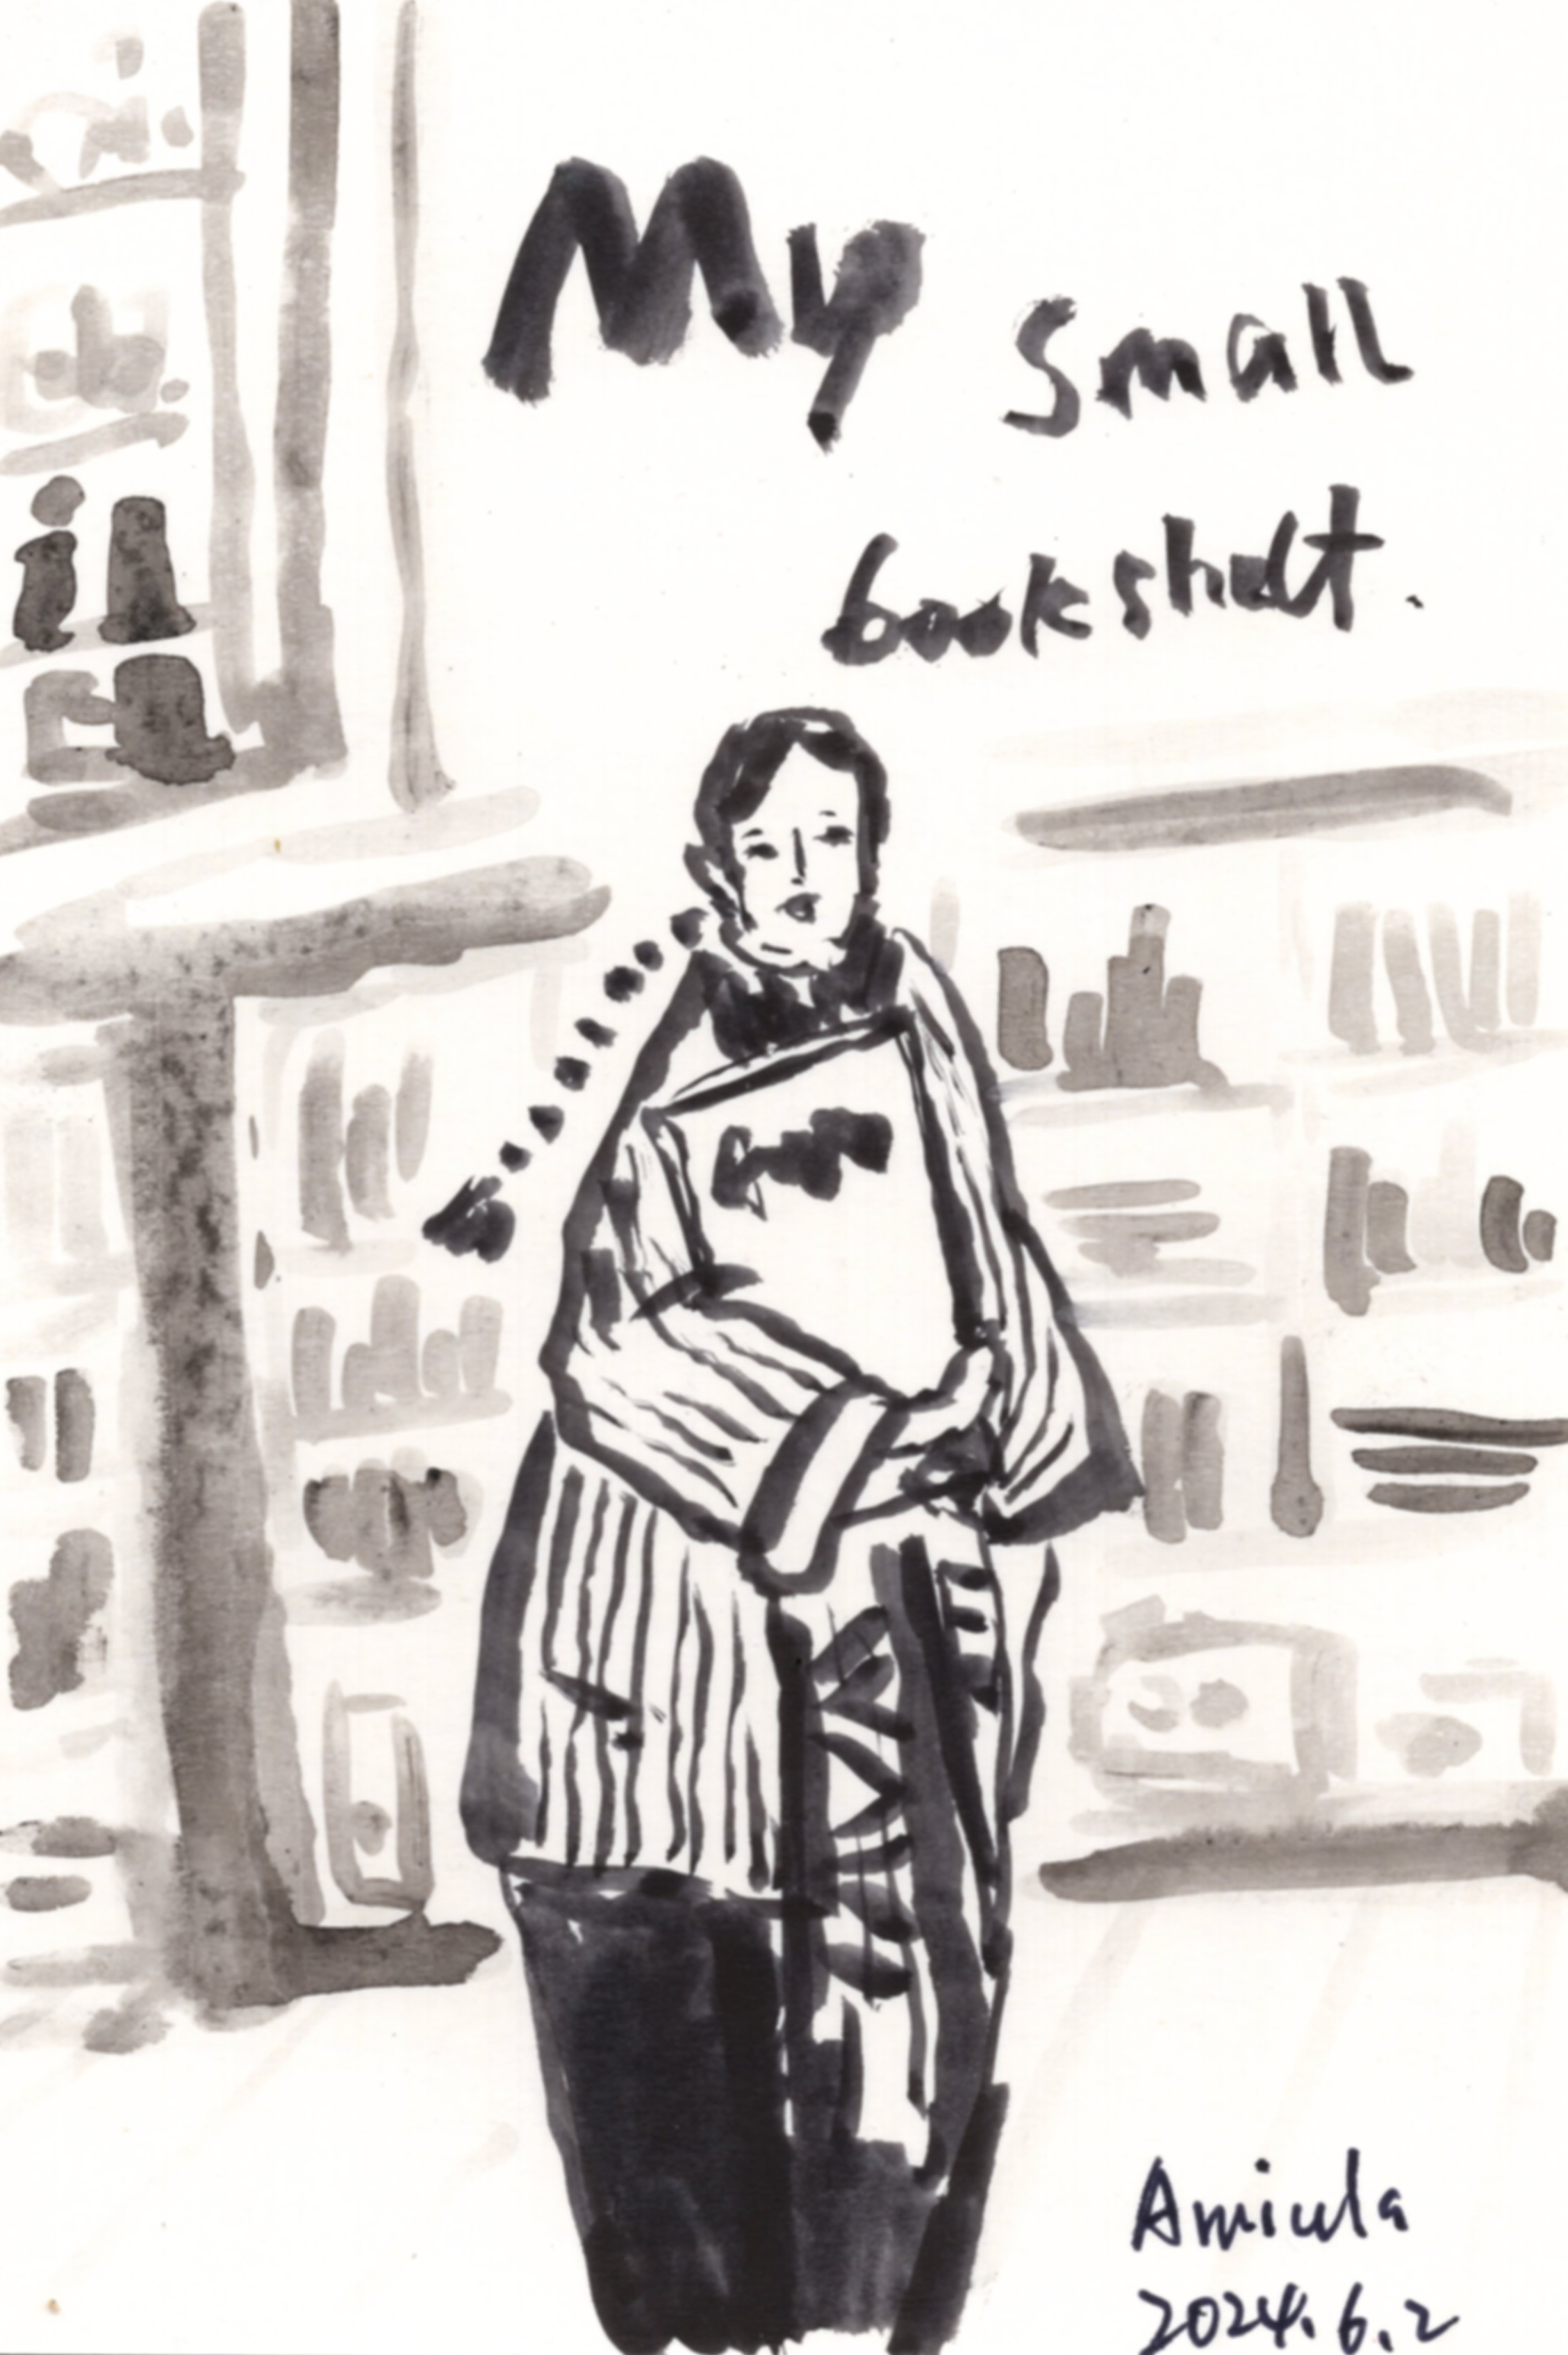 My small
bookshelt.
Amicula
2024.6.2